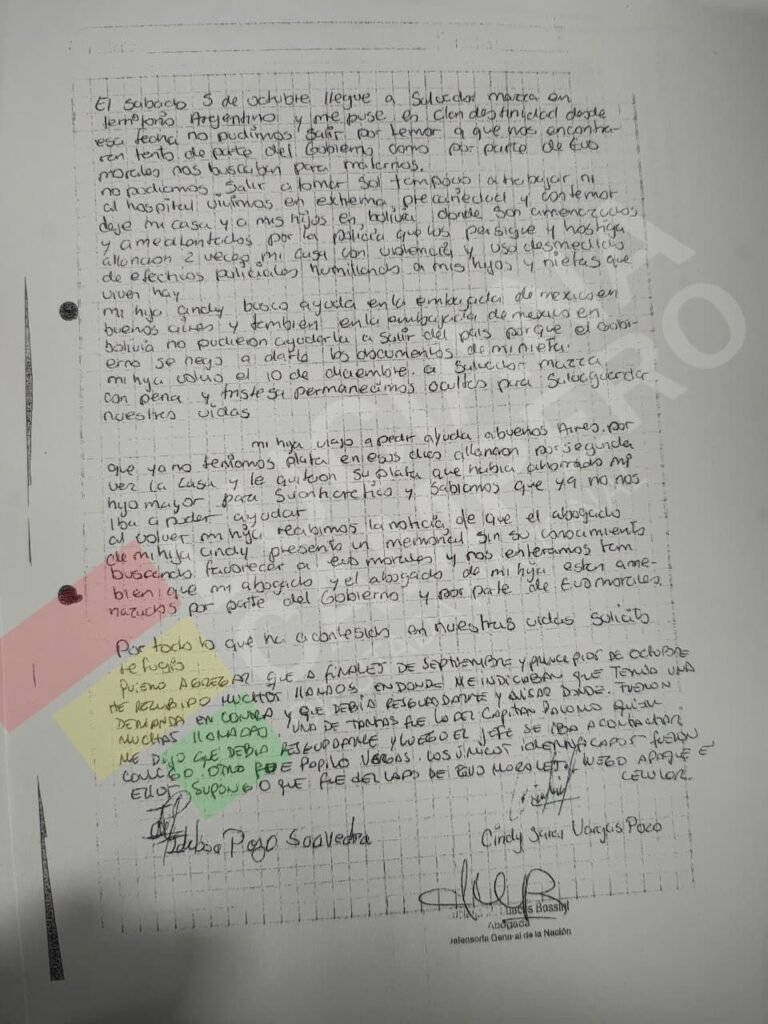 El sabado 5 de octubre llegue a Salvador mazza en
territorio Argentino y me puse en clandestinidad desde
esa fecha no pudimos salir por temor a que nos encontra-
ran tento de parte del Gobierno como por parte de Evo
morales nos buscaban para matarnos.
no podiamos salir a tomar sol tampoco a trabajar ni
al hospital vivimos en extrema precariedad y con temor
deje mi casa y a mis hijos en bolivia donde son amenazados
y amedlontados por la policia que los persigue y hostiga
allanaron 2 veces mi casa con violencia y uso desmedido
de efectivos policiales humillando a mis hijos y nietas que
viven hay
mi hija cindy busco ayuda en la embajada de mexico en
buenos aires y tambien en la embajada de mexico en
bolivia no pudieron ayudarla a salir del pais porque el Gobi-
erno se nego a darle los documentos de mi nieta.
mi hija volvio el 10 de diciembre a Salvador mazza
con pena y tristesa permanecimos ocultos para Salvaguardar
nuestras vidas
mi hija viajo a pedir ayuda a buenos Aires por
que ya no teniamos plata en esos dias allanaron por segunda
vez la casa y le quitaron su plata que habia ahorrado mi
hijo mayor para su y sabiamos que ya no nos
iba a poder ayudar
al volver mi hija recibimos la noticia de que el abogado
de mi hija cindy presento un memorial sin su conocimiento
buscando favorecer a evo morales y nos enteramos tam
bien que mi abogado y el abogado de mi hija estan ame-
nazados por parte del Gobierno y por parte de Evo morales.
Por todo lo que ha acontesido en nuestras vidas solicito
refugio
QUIERO AGREGAR QUE A FINALES DE SEPTIEMBRE Y PRINCIPIOS DE OCTUBRE
HE RECIBIDO MUCHOS LLAMADOS EN DONDE ME INDICABAN QUE TENIA UNA
DEMANDA EN CONTRA Y QUE DEBIA RESGUARDARME Y DONDE. FUERON
MUCHAS LLAMADAS. UNA DE TANTAS FUE LO DEL CAPITAN PALOMO QUIEN
ME DIJO QUE DEBIA RESGUARDARME Y LUEGO EL JEFE SE IBA A CONTACTAR
CONMIGO. OTRO FUE POPILO VARGAS. LOS UNICOS IDENTIFICADOS FUERON
ELLOS. SUPONGO QUE FUE DEL LADO DE EVO MORALES. LUEGO APAGUE EL
CELULAR.
Idelsa Pozo Saavedra
Cindy Sarai Vargas Pozo
Rossini
Abogada
Defensoría General de la Nación